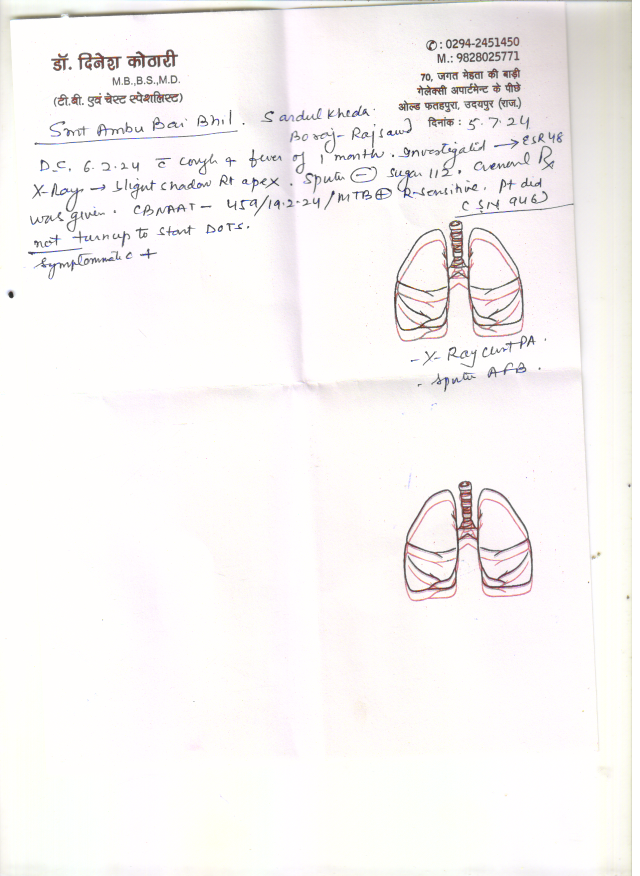 डॉ. दिनेश कोठारी
M.B.,B.S.,M.D.
(टी.बी. एवं चेस्ट स्पेशलिस्ट)
✆ : 0294-2451450
M.: 9828025771
70, जगत मेहता की बाड़ी
गेलेक्सी अपार्टमेन्ट के पीछे
ओल्ड फतहपुरा, उदयपुर (राज.)
दिनांक : 5.7.24
Smt Ambu Bai Bhil. Sardul Kheda.
Boraj-Rajsawd
D.C. 6.2.24 c̄ cough + fever of 1 month. Investigated → ESR 48
X-Ray → Slight shadow Rt apex. Sputu ⊖ Sugar 112. General Rx
was given. CBNAAT - 459/19.2.24/MTB⊕ R-sensitive. Pt did
(SN 946)
not turnup to start DOTS.
Symptomatic +
- X-Ray Chest PA.
- Sputu AFB.